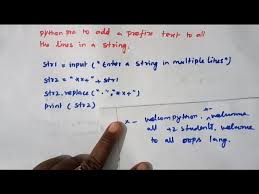 python pro to add a prefix text to all
the lines in a string.
str1 = input ("Enter a string in multiple lines")
str2 = "**+" + str1
str2.replace (".","**+")
print (str2)
all +2 students, welcome
to all oops lang.